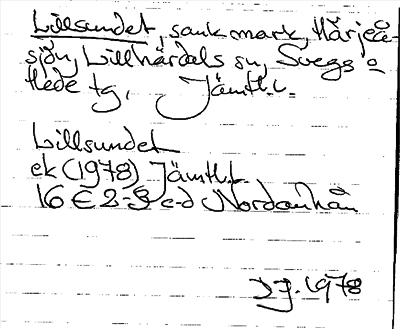 Lillsundet, sank mark, Härjeå-
sjön, Lillhärdals sn, Svegs o
Hede tg, Jämtl.l.
Lillsundet
ek (1978) Jämtl.l.
16 E 2-3 c-d Nordanhån
1978